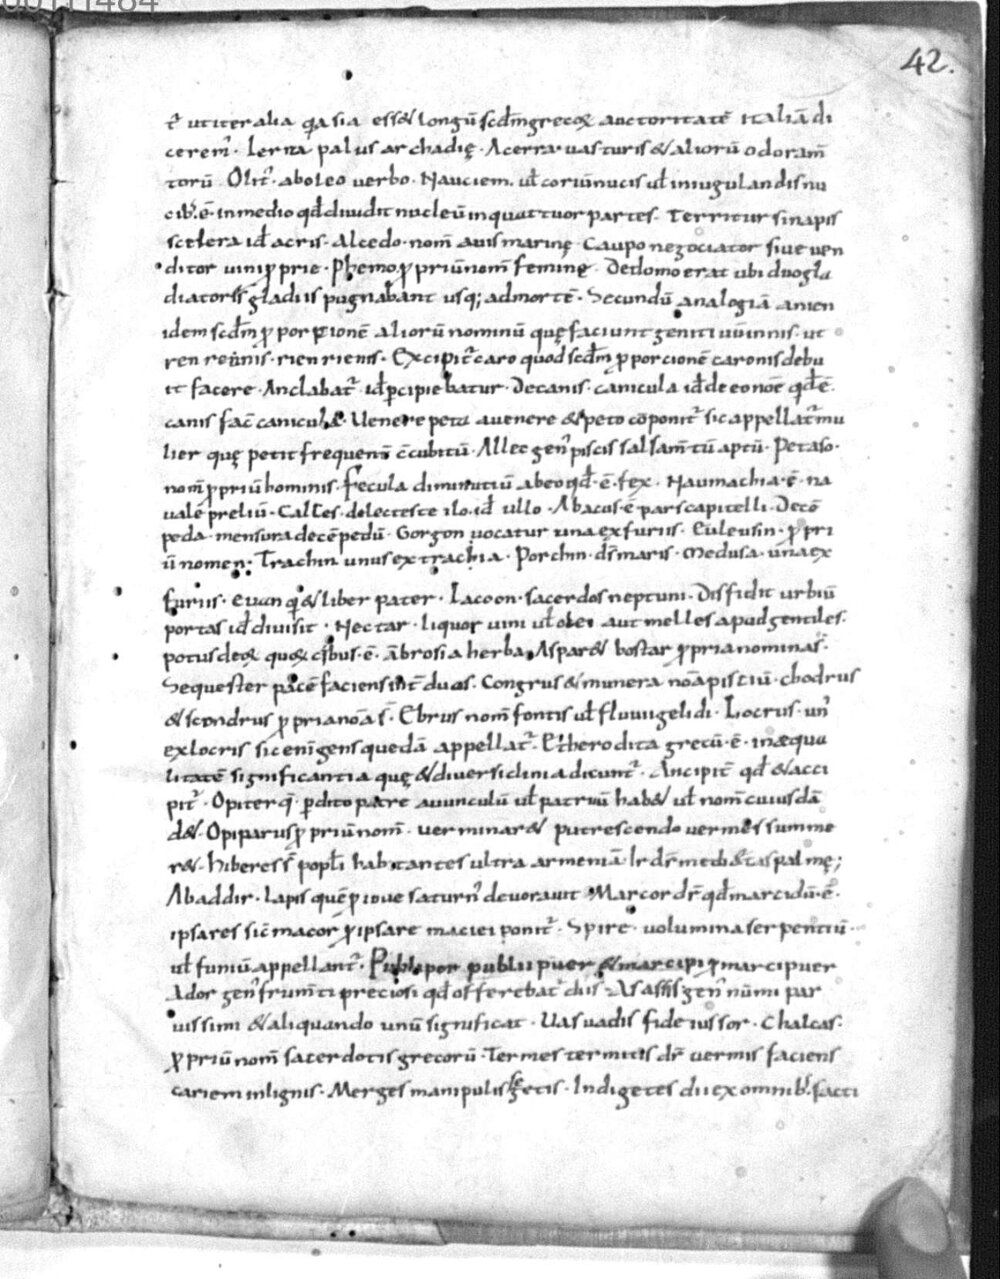 00111484
42.
ē ut iter alia q̄a sia ess& longū scd̄m grecoꝝ auctoritatē italiā di
cerem̄. Lerna palus archadię. Acerra uas turis & aliorū odoram̄
torū. Olit̄. ab oleo uerbo. Nauciem. ul̄ coriū nucis ul̄ in iuglandis nu
cib; ē. in medio qd̄ diuidit nucleū in quattuor partes. Territur sinapis
scelera id̄ acris. Alcedo. nom̄ auis marinę. Caupo negociator siue uen
ditor uini ꝓprie. Phemo ꝓpriū nom̄ feminę. De domo erat ubi duo gla
diatores gladiis pugnabant usq; ad mortē. Secundū analogiā anien
idem scd̄m ꝓportionē aliorū nominū quę faciunt geniti uū in nis. ut
ren renis. rien rienis. Excipit̄ caro quod scd̄m ꝓporcionē caronis debu
it facere. Anclabat̄ id̄ p̄cipiebatur. De canis. canicula id̄ de eo noē qd̄ ē.
canis fac̄ canicula. Uenerepeta a uenere & peto cōponit̄ sic appellat̄ mu
lier quę petit frequens c̄cubitū. Allec gen̄ piscis salsam̄tū aptū. Petaso.
nom̄ ꝓpriū hominis. Fecula diminutiū ab eo qd̄. ē. fex. Naumachia. ē. na
uale preliū. Calles. delecteste ilo. id̄ ullo. Abacus. ē pars capitelli. Decē
peda. mensura decē pedū. Gorgon uocatur una ex furiis. Euleusin. ꝓpri
ū nomen. Trachin unus ex trachia. Porchin. dr̄ maris. Medusa. una ex
furiis. euan q̄ & liber pater. Lacoon. sacerdos neptuni. Diffidit urbiū
portas id̄ diuisit. Nectar. liquor uini ul̄ olei aut melles apud gentiles.
potus deoꝝ quoꝝ cibus. ē. ābrosia herba. Aspar & bostar ꝓpria nomina s̄.
Sequester pacē faciens int̄ duos. Congrus & munera noā pisciū. chodrus
& scondrus ꝓpria noā s̄. Ebrus nom̄ fontis ul̄ fluuii gelidi. Locrus. un̄
ex locris sic enī gens quedā appellat̄. Etherodita grecū. ē. inæqua
litatē significantia quę & diuersiclinia dicunt̄. Ancipit̄ qd̄ & acci
pit̄. Opiter q̄ p̄dito patre auunculū ul̄ patruū hab& ul̄ nom̄ cuiusdā
d&. Opiparus ꝓpriū nom̄. uerminar& putrescendo uermes summe
r&. hiberes s̄ popl̄i habitantes ultra armeniā Ir dr̄ medi&as palmę;
Abaddir. lapis quē ꝓ ioue saturn̄ deuorauit. Marcor dr̄ qd̄ marcidū. ē.
ipsa res sic̄ macor ꝓ ipsa re maciei ponit̄. Spire. uolumina serpentiū.
ul̄ funiū appellant̄. Publipor publii puer & marcipor marci puer
Ador gen̄ frum̄ti preciosi qd̄ offerebat̄ diis. As assis gen̄ nūmi par
uissimi & aliquando unū significat. Uas uadis fideiussor. Chalcas.
ꝓpriū nom̄ sacerdotis grecorū. Termes termitis dr̄ uermis faciens
cariem in lignis. Merges manipulis segetis. Indigetes dii ex omnib; facti